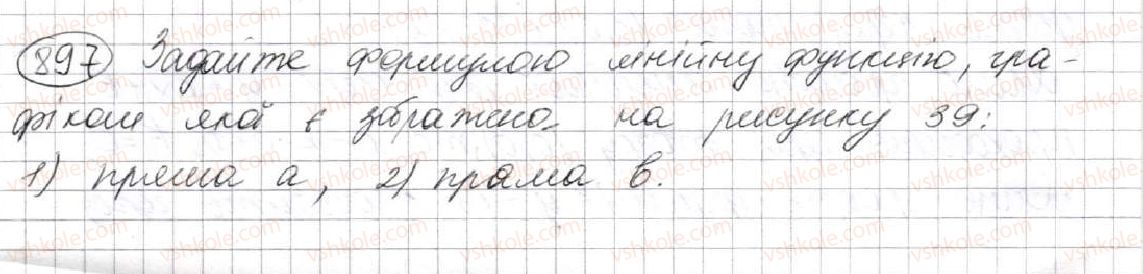 897 Задайте формулою лінійну функцію, гра-
фіком якої є зображено на рисунку 39:
1) пряма а, 2) прама в.